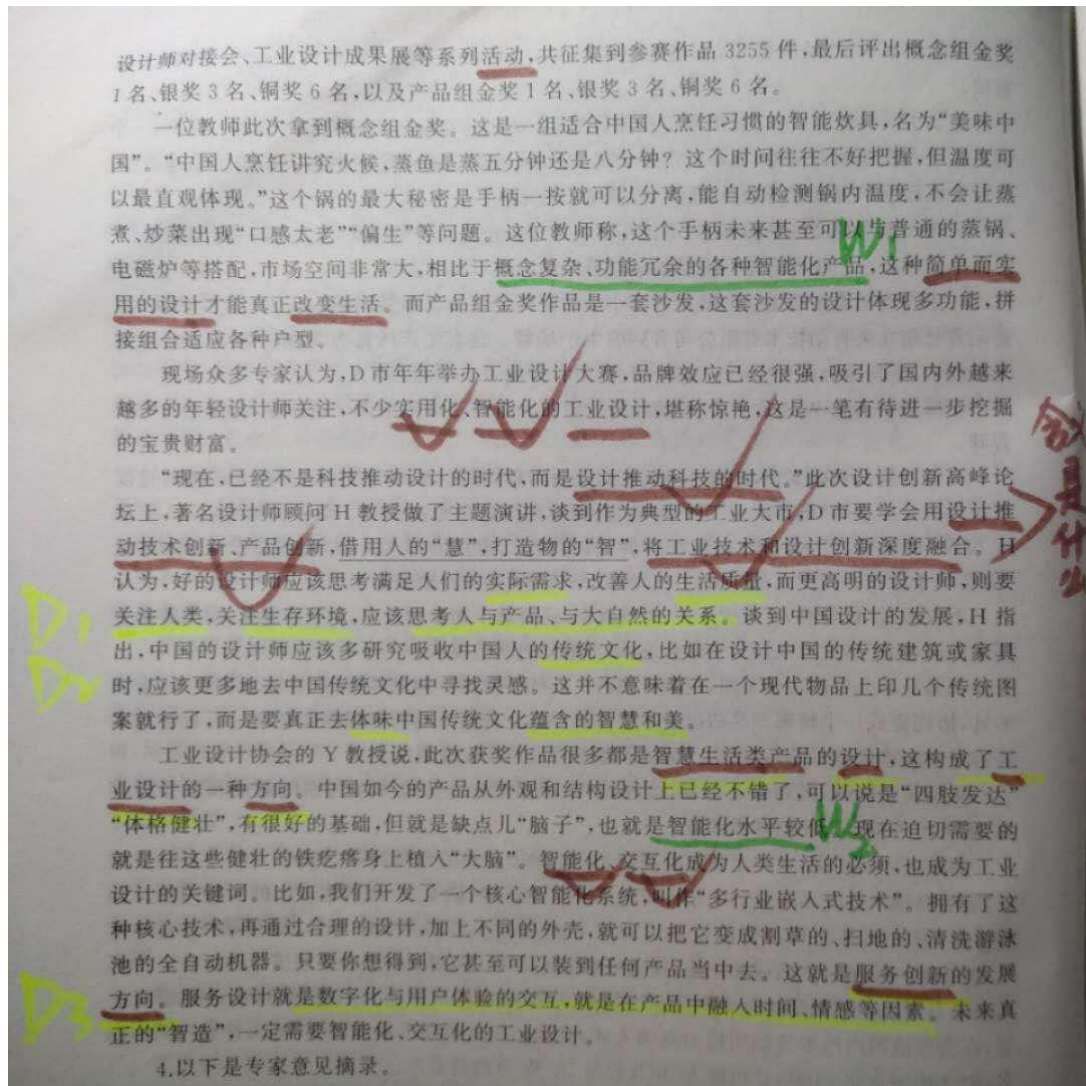 设计师对接会、工业设计成果展等系列活动,共征集到参赛作品3255件,最后评出概念组金奖
1名、银奖3名、铜奖6名,以及产品组金奖1名、银奖3名、铜奖6名。
一位教师此次拿到概念组金奖。这是一组适合中国人烹饪习惯的智能炊具,名为“美味中
国”。“中国人烹饪讲究火候,蒸鱼是蒸五分钟还是八分钟?这个时间往往不好把握,但温度可
以最直观体现。”这个锅的最大秘密是手柄一按就可以分离,能自动检测锅内温度,不会让蒸
煮、炒菜出现“口感太老”“偏生”等问题。这位教师称,这个手柄未来甚至可以与普通的蒸锅、
W1
电磁炉等搭配,市场空间非常大,相比于概念复杂、功能冗余的各种智能化产品,这种简单而实
用的设计才能真正改变生活。而产品组金奖作品是一套沙发,这套沙发的设计体现多功能,拼
接组合适应各种户型。
现场众多专家认为,D市年年举办工业设计大赛,品牌效应已经很强,吸引了国内外越来
越多的年轻设计师关注,不少实用化、智能化的工业设计,堪称惊艳,这是一笔有待进一步挖掘
的宝贵财富。
“现在,已经不是科技推动设计的时代,而是设计推动科技的时代。”此次设计创新高峰论
坛上,著名设计师顾问H教授做了主题演讲,谈到作为典型的工业大市,D市要学会用设计推
是什么
动技术创新、产品创新,借用人的“慧”,打造物的“智”,将工业技术和设计创新深度融合。H
认为,好的设计师应该思考满足人们的实际需求,改善人的生活质量,而更高明的设计师,则要
D1
关注人类,关注生存环境,应该思考人与产品、与大自然的关系。谈到中国设计的发展,H指
出,中国的设计师应该多研究吸收中国人的传统文化,比如在设计中国的传统建筑或家具
D2
时,应该更多地去中国传统文化中寻找灵感。这并不意味着在一个现代物品上印几个传统图
案就行了,而是要真正去体味中国传统文化蕴含的智慧和美。
工业设计协会的Y教授说,此次获奖作品很多都是智慧生活类产品的设计,这构成了工
业设计的一种方向。中国如今的产品从外观和结构设计上已经不错了,可以说是“四肢发达”
“体格健壮”,有很好的基础,但就是缺点儿“脑子”,也就是智能化水平较低。现在迫切需要的
W2
就是往这些健壮的铁疙瘩身上植入“大脑”。智能化、交互化成为人类生活的必须,也成为工业
设计的关键词。比如,我们开发了一个核心智能化系统,叫作“多行业嵌入式技术”。拥有了这
种核心技术,再通过合理的设计,加上不同的外壳,就可以把它变成割草的、扫地的、清洗游泳
池的全自动机器。只要你想得到,它甚至可以装到任何产品当中去。这就是服务创新的发展
D3
方向。服务设计就是数字化与用户体验的交互,就是在产品中融入时间、情感等因素。未来真
正的“智造”,一定需要智能化、交互化的工业设计。
4.以下是专家意见摘录。